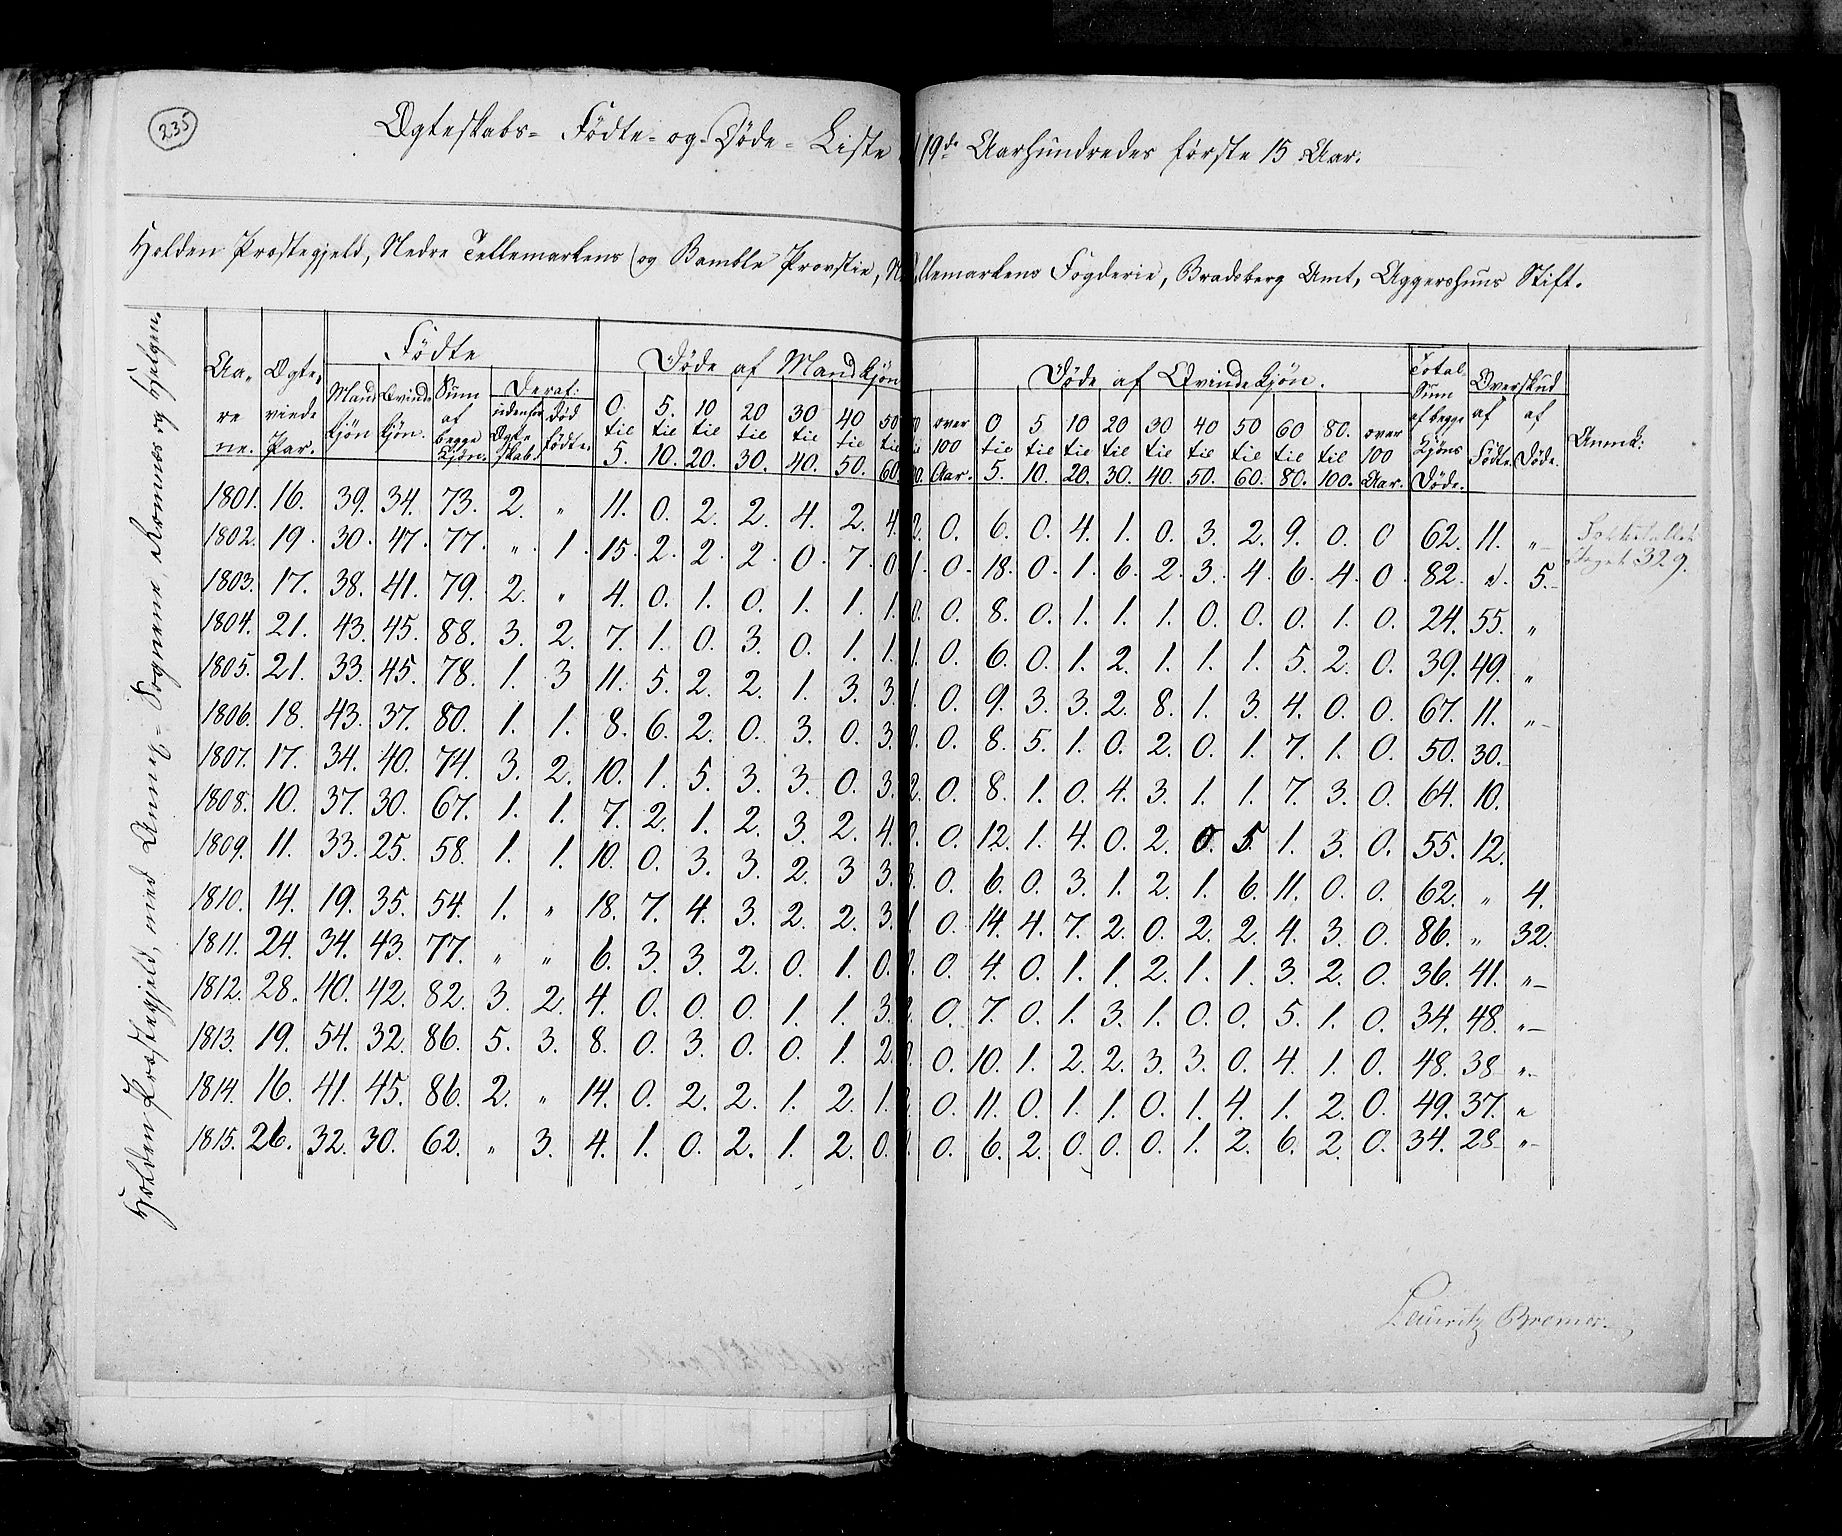 235
Ægteskabs- Födte- og Döde- Liste 19de Aarhundredes förste 15 Aar.
Holden Præstegjeld, Nedre Tellemarkens og Bamble Provstie, N llemarkens Fogderie, Bradsberg Amt, Aggershuus Stift.
Holden Præstegjeld, med Annex-Sognene, Romnæs og Helgen.
Aarene. Ægteviede Par. Födte Döde af Mandkjön Döde af Qvindekjön. Total Sum af begge Kjöns Döde. Overskud af Födte. af Döde. Anmk:
Mandkjön Qvindekjön. Sum af begge Kjön. Deraf: udenfor Ægteskab. Dödfödte. 0 til 5. 5. til 10. 10 til 20. 20 til 30. 30 til 40. 40 til 50. 50 til 60. over 100 Aar. 0 til 5. 5. til 10. 10 til 20. 20 til 30. 30 til 40. 40 til 50. 50 til 60. 60 til 80. 80. til 100. over 100 Aar.
1801. 16. 39. 34. 73. 2. " 11. 0. 2. 2. 4. 2. 4. 2. 0. 6. 0. 4. 1. 0. 3. 2. 9. 0. 0 62. 11. "
1802. 19. 30. 47. 77. " 1. 15. 2. 2. 2. 0. 7. 0. 1. 0. 18. 0. 1. 6. 2. 3. 4. 6. 4. 0. 82. " 5.
1803. 17. 38. 41. 79. 2. " 4. 0. 1. 0. 1. 1. 1. 0. 0. 8. 0. 1. 1. 1. 0. 0. 0. 1. 0. 24. 55. "
1804. 21. 43. 45. 88. 3. 2. 7. 1. 0. 3. 0. 1. 1. 1. 0. 6. 0. 1. 2. 1. 1. 1. 5. 2. 0. 39. 49. "
1805. 21. 33. 45. 78. 1. 3 11. 5. 2. 2. 1. 3. 3. 1. 0. 9. 3. 3. 2. 8. 1. 3. 4. 0. 0. 67. 11. "
1806. 18. 43. 37. 80. 1. 1. 8. 6. 2. 0. 3. 0. 3. 0. 0. 8. 5. 1. 0. 2. 0. 1. 7. 1. 0. 50. 30.
1807. 17. 34. 40. 74. 3. 2. 10. 1. 5. 3. 3. 0. 3. 2. 0. 8. 1. 0. 4. 3. 1. 1. 7. 3. 0. 64. 10.
1808. 10. 37. 30. 67. 1. 1. 7. 2. 1. 2. 3. 2. 4. 0. 0. 12. 1. 4. 0. 2. 0. 5. 1. 3. 0. 55. 12.
1809. 11. 33. 25. 58. 1. 1. 10. 0. 3. 3. 2. 3 3. 3. 0. 6. 0. 3. 1. 2. 1. 6. 11. 0. 0. 62. " 4.
1810. 14. 19. 35. 54. 1. " 18. 7. 4. 3. 2. 2. 3. 1. 0. 14. 4. 7. 2. 0. 2. 2. 4. 3. 0. 86. " 32.
1811. 24. 34. 43. 77. " " 6. 3. 3. 2. 0. 1. 0. 0. 4. 0. 1. 1. 2. 1. 1. 3. 2. 0. 36. 41. "
1812. 28. 40. 42. 82. 3. 2. 4. 0. 0. 0. 1. 1. 3. 0. 7. 0. 1. 3. 1. 0. 0. 5. 1. 0. 34. 48. "
1813. 19. 54. 32. 86. 5. 3. 8. 0. 3. 0. 0. 1. 2. 0. 10. 1. 2. 2. 3. 3. 0. 4. 1. 0. 48. 38 "
1814. 16. 41. 45. 86. 2. " 14. 0. 2. 2. 1. 2. 1. 0. 11. 0. 1. 1. 0. 1. 4. 1. 2. 0. 49. 37. "
1815. 26. 32. 30. 62. " 3. 4. 1. 0. 2. 1. 2. 0. 0. 6. 2. 0. 0. 0. 1. 2. 6. 2. 0. 34. 28 "
329.
Lauritz Bremer.